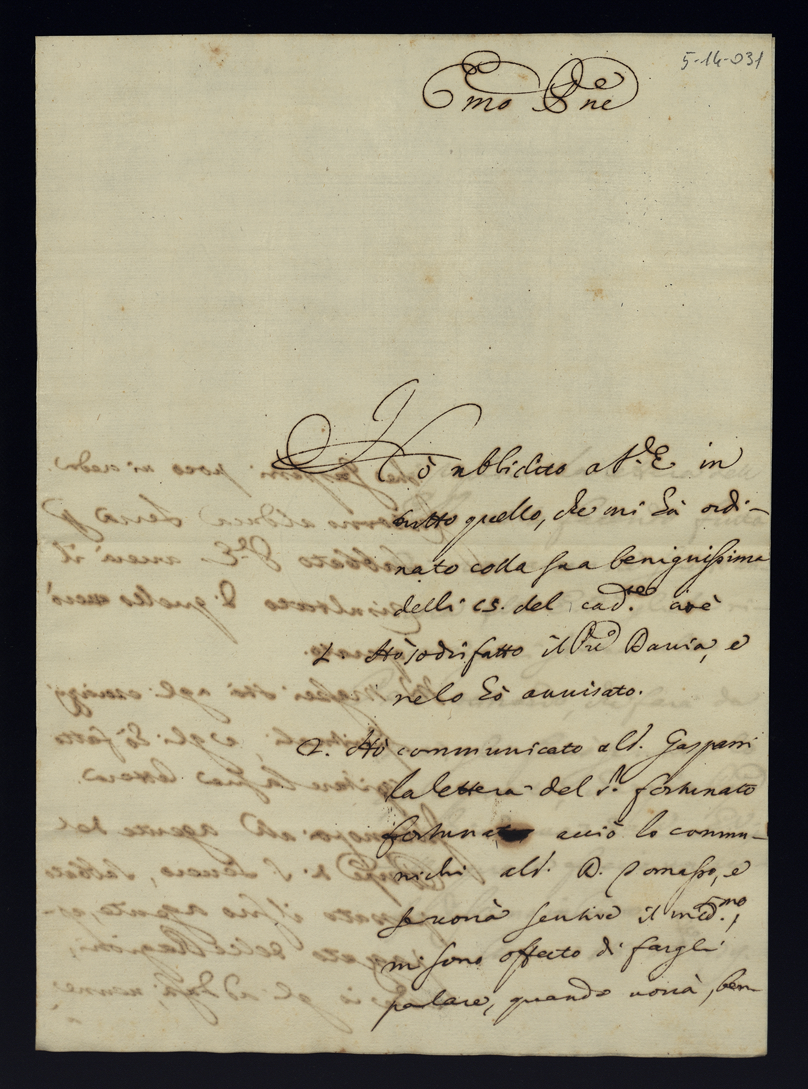 5-14-031
Emo Pne
Hò ubbidito a V.E. in
tutto quello, che mi hà ordi-
nato colla sua benignissima
delli 15. del cad.te cioè
1. Hò sodisfatto il Davia, e
ne lo hò avvisato.
2. Hò communicato al S. Gasparri
la lettera del S.r fortunato
fortunato acciò lo commu-
nichi al S. D. Tomasso, e
se vorrà sentire il med.mo,
mi sono offerto di fargli
parlare, quando vorrà, ben-